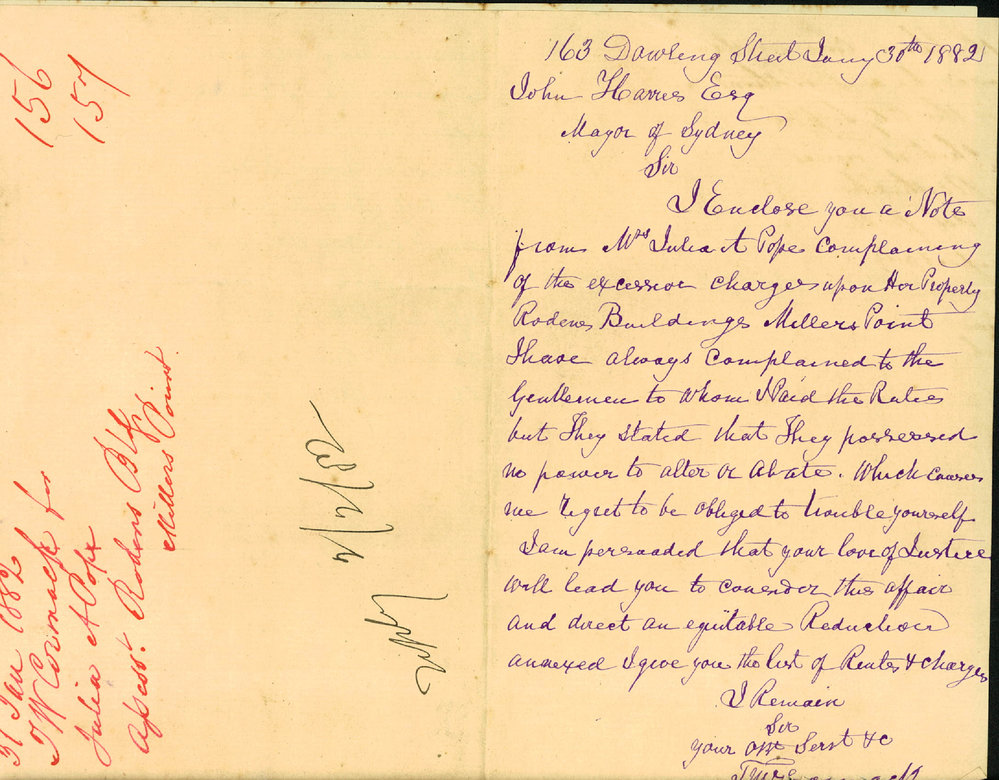 163 Dowling Street Jany 30th 1882
John Harris Esq
Mayor of Sydney
Sir
I Enclose you a Note
from Mrs Julia A Pope Complaining
of the excessive charges upon Her Property
Rodens Buildings Millers Point
I have always Complained to the
Gentlemen to whom I Paid the Rates
but They stated that They possessed
no power to alter or Abate. Which causes
me regret to be obliged to trouble yourself
I am persuaded that your love of Justice
will lead you to consider this affair
and direct an equitable Reduction
annexed I give you the list of Rents & charges
I Remain
Sir
your obt Servt &c
156
157
31 Jan 1882
W Cormack for
Julia A Pope
Assesst. Rodens Bldg
Millers Point